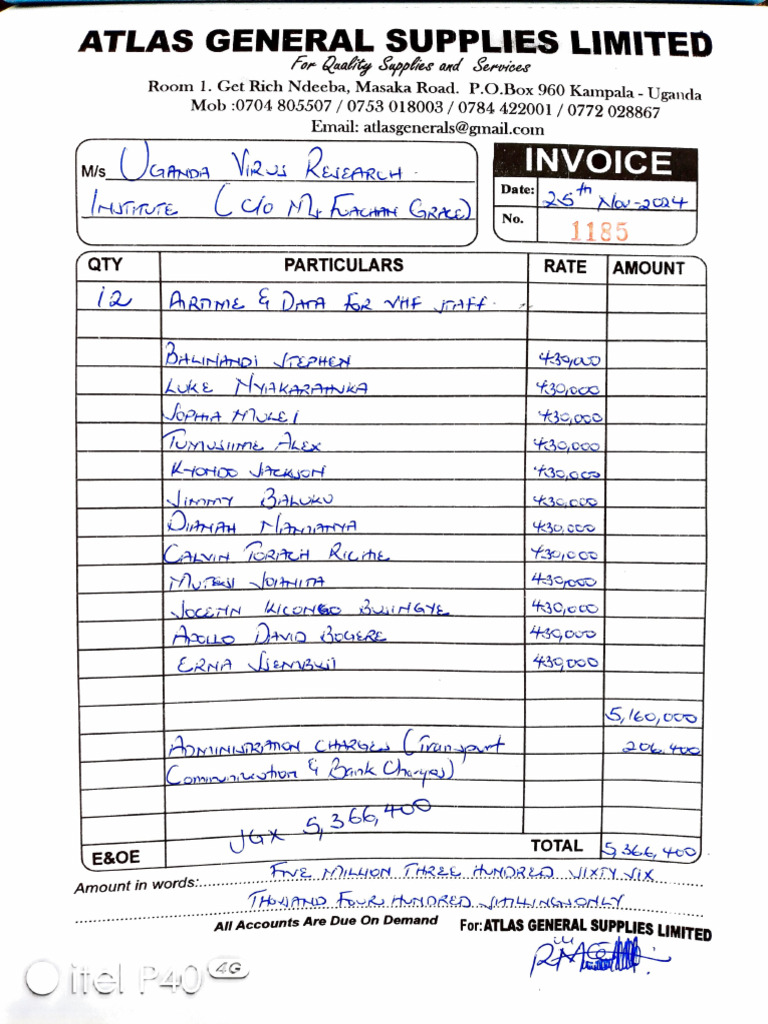 ATLAS GENERAL SUPPLIES LIMITED
For Quality Supplies and Services
Room 1. Get Rich Ndeeba, Masaka Road. P.O.Box 960 Kampala - Uganda
Mob :0704 805507 / 0753 018003 / 0784 422001 / 0772 028867
Email: atlasgenerals@gmail.com
M/s UGANDA VIRUS RESEARCH
INSTITUTE (C/O GRACE)
INVOICE
Date: 25th Nov-2024
No. 1185
QTY PARTICULARS RATE AMOUNT
12 AIRTIME & DATA FOR VHF STAFF
BALINANDI STEPHEN 430,000
LUKE NYAKARAHUKA 430,000
SOPHIA MULEI 430,000
TUMUSIIME ALEX 430,000
KYONDO JACKSON 430,000
JIMMY BALUKU 430,000
DIANAH 430,000
CALVIN TORACH 430,000
MUTESI JOANITA 430,000
JOCELYN KICONGO BUSINGYE 430,000
APOLLO DAVID BOGERE 430,000
ERNA 430,000
5,160,000
ADMINISTRATION CHARGES (Transport 206,400
Communication & Bank Charges)
UGX 5,366,400
E&OE TOTAL 5,366,400
Amount in words: FIVE MILLION THREE HUNDRED SIXTY SIX
THOUSAND FOUR HUNDRED SHILLINGS ONLY
All Accounts Are Due On Demand For: ATLAS GENERAL SUPPLIES LIMITED
itel P40 4G